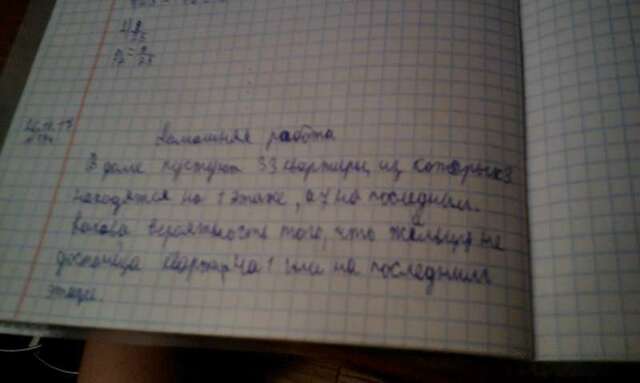 Домашняя работа
В доме пустуют 33 квартиры, из которых 3
находятся на 1 этаже, а 7 на последним.
Какова вероятность того, что жельцу не
достонеца квартира на 1 или на последнем
этаже.